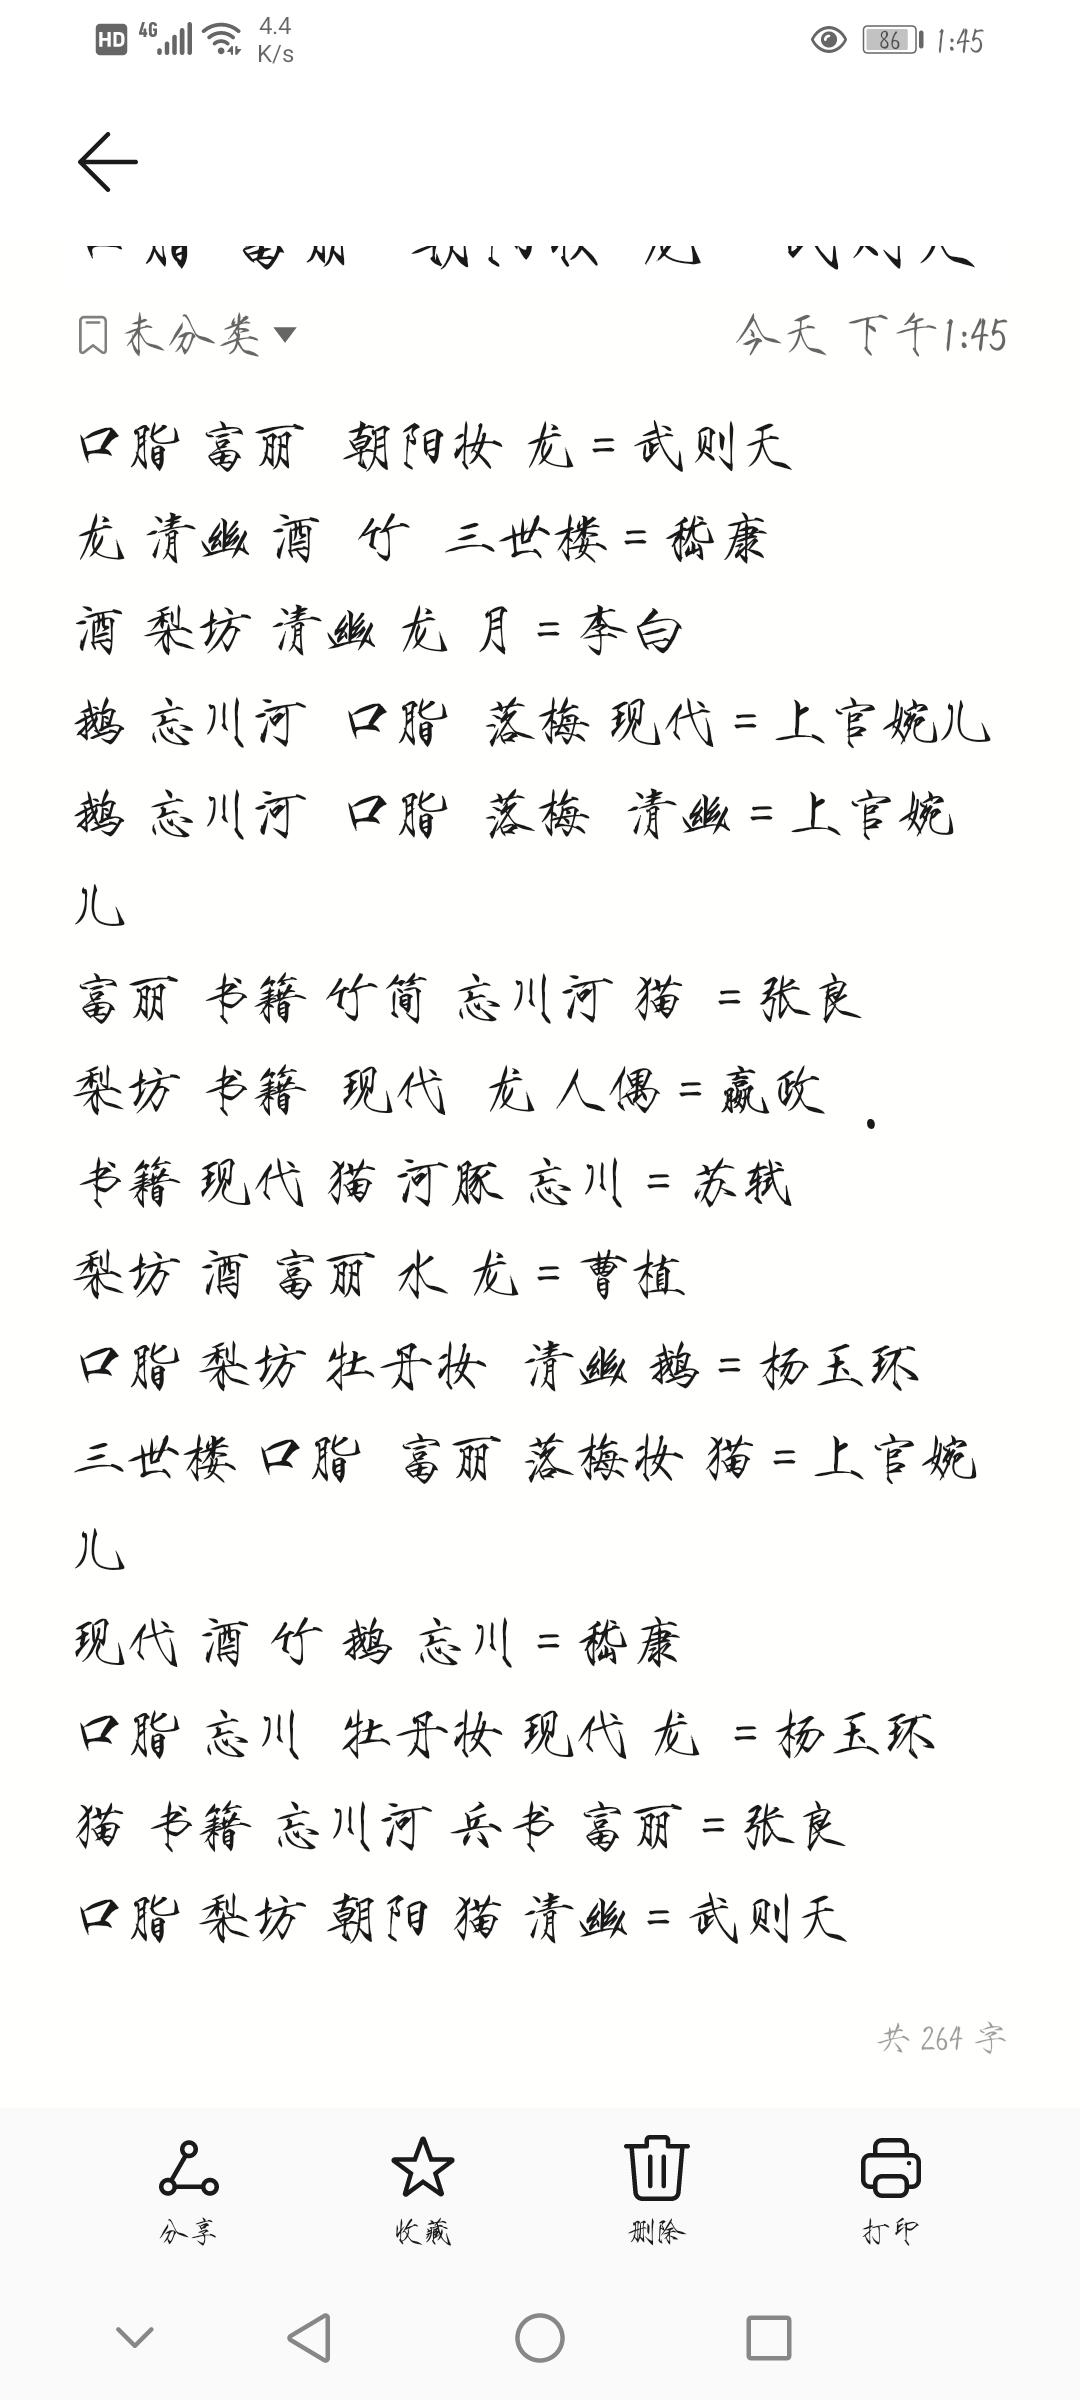 HD 4G 4.4 K/s 86 1:45
口脂 富丽 朝阳妆 龙 武则天
未分类 今天 下午1:45
口脂 富丽 朝阳妆 龙 = 武则天
龙 清幽 酒 竹 三世楼 = 嵇康
酒 梨坊 清幽 龙 月 = 李白
鹅 忘川河 口脂 落梅 现代 = 上官婉儿
鹅 忘川河 口脂 落梅 清幽 = 上官婉
儿
富丽 书籍 竹简 忘川河 猫 = 张良
梨坊 书籍 现代 龙 人偶 = 嬴政
书籍 现代 猫 河豚 忘川 = 苏轼
梨坊 酒 富丽 水 龙 = 曹植
口脂 梨坊 牡丹妆 清幽 鹅 = 杨玉环
三世楼 口脂 富丽 落梅妆 猫 = 上官婉
儿
现代 酒 竹 鹅 忘川 = 嵇康
口脂 忘川 牡丹妆 现代 龙 = 杨玉环
猫 书籍 忘川河 兵书 富丽 = 张良
口脂 梨坊 朝阳 猫 清幽 = 武则天
共 264 字
分享 收藏 删除 打印